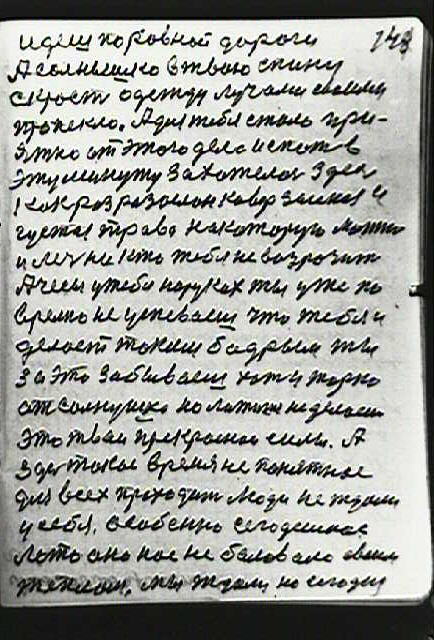 148
идеш по ровной дороги
А солнышко в твою спину
скрость одежду лучами своими
пропекло. А для тебя стало при-
ятно от этого дела и спать в
эту минуту захотелось здесь
как раз разослан ковер зеленая и
густая трава на которую можно
и лечь никто тебя не возрозит
А часы у тебя на руках ты уже по
время не успеваеш что тебя и
делает таким бодрым ты
за это забываеш хоть и жарко
от солнушка но
это твои прекрасные силы. А
здесь такое время не понятное
для всех проходит люди не ждали
у себя. Особенно сегодешнее
лето оно нас не баловало своим
теплом. Мы ждали но сегодня